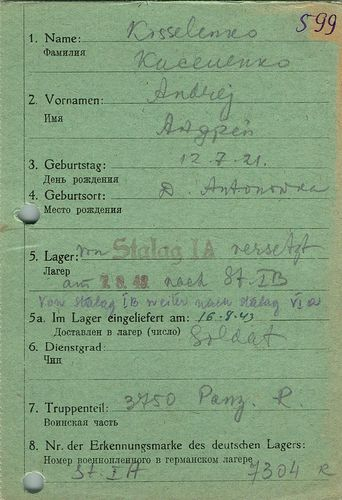 599
1. Name: Kisselenko
Фамилия
Киселенко
2. Vornamen: Andrej
Имя
Андрей
3. Geburtstag: 12.7.21.
День рождения
4. Geburtsort: D. Antonowka
Место рождения
5. Lager: von Stalag IA versetzt
Лагер
am nach St. IB
Von Stalag IB weiter nach Stalag VI a
5a. Im Lager eingeliefert am: 16.8.43
Доставлен в лагер (число)
6. Dienstgrad: Soldat
Чин
7. Truppenteil: 3750 Panz. R.
Воинская часть
8. Nr. der Erkennungsmarke des deutschen Lagers:
Номер военнопленного в германском лагере
St. I A 7304